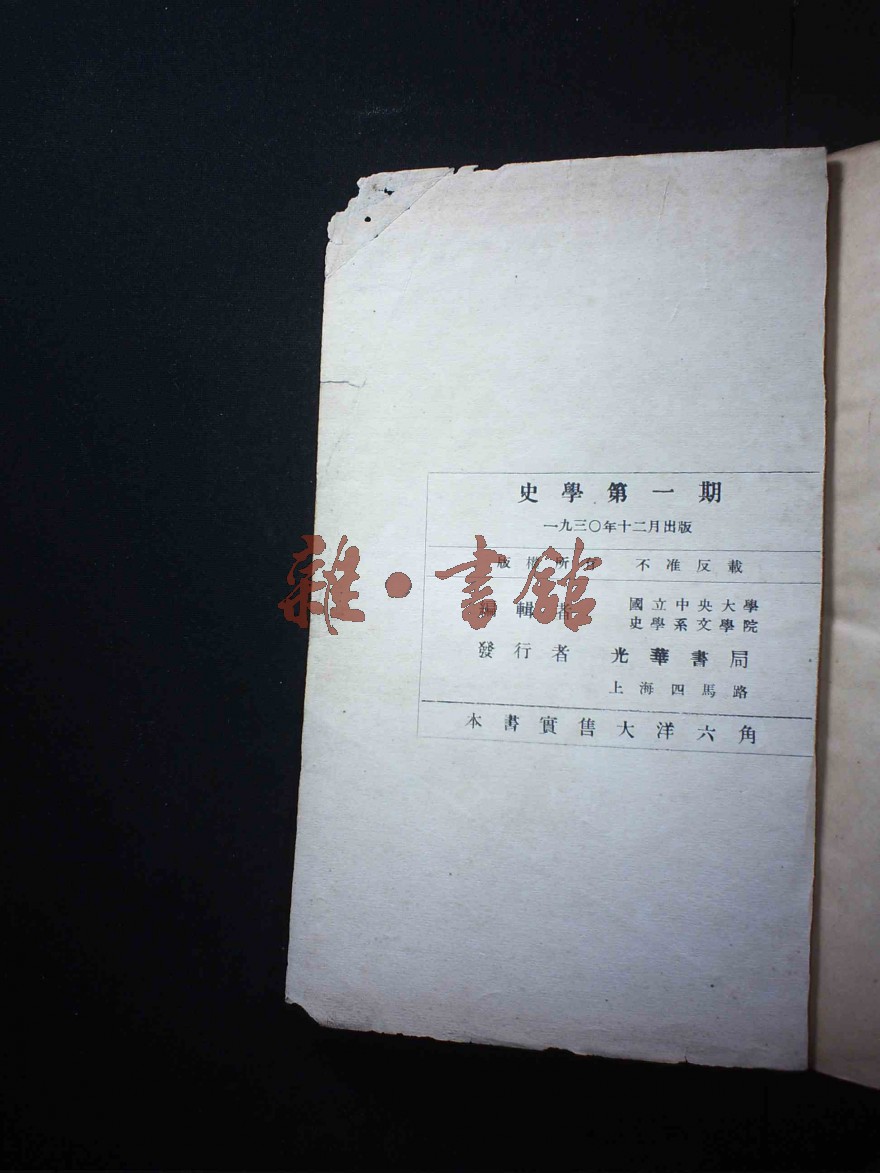 史學第一期
一九三〇年十二月出版
版權所有 不准反載
編輯者 國立中央大學
史學系文學院
發行者 光華書局
上海四馬路
本書實售大洋六角
雜·書館